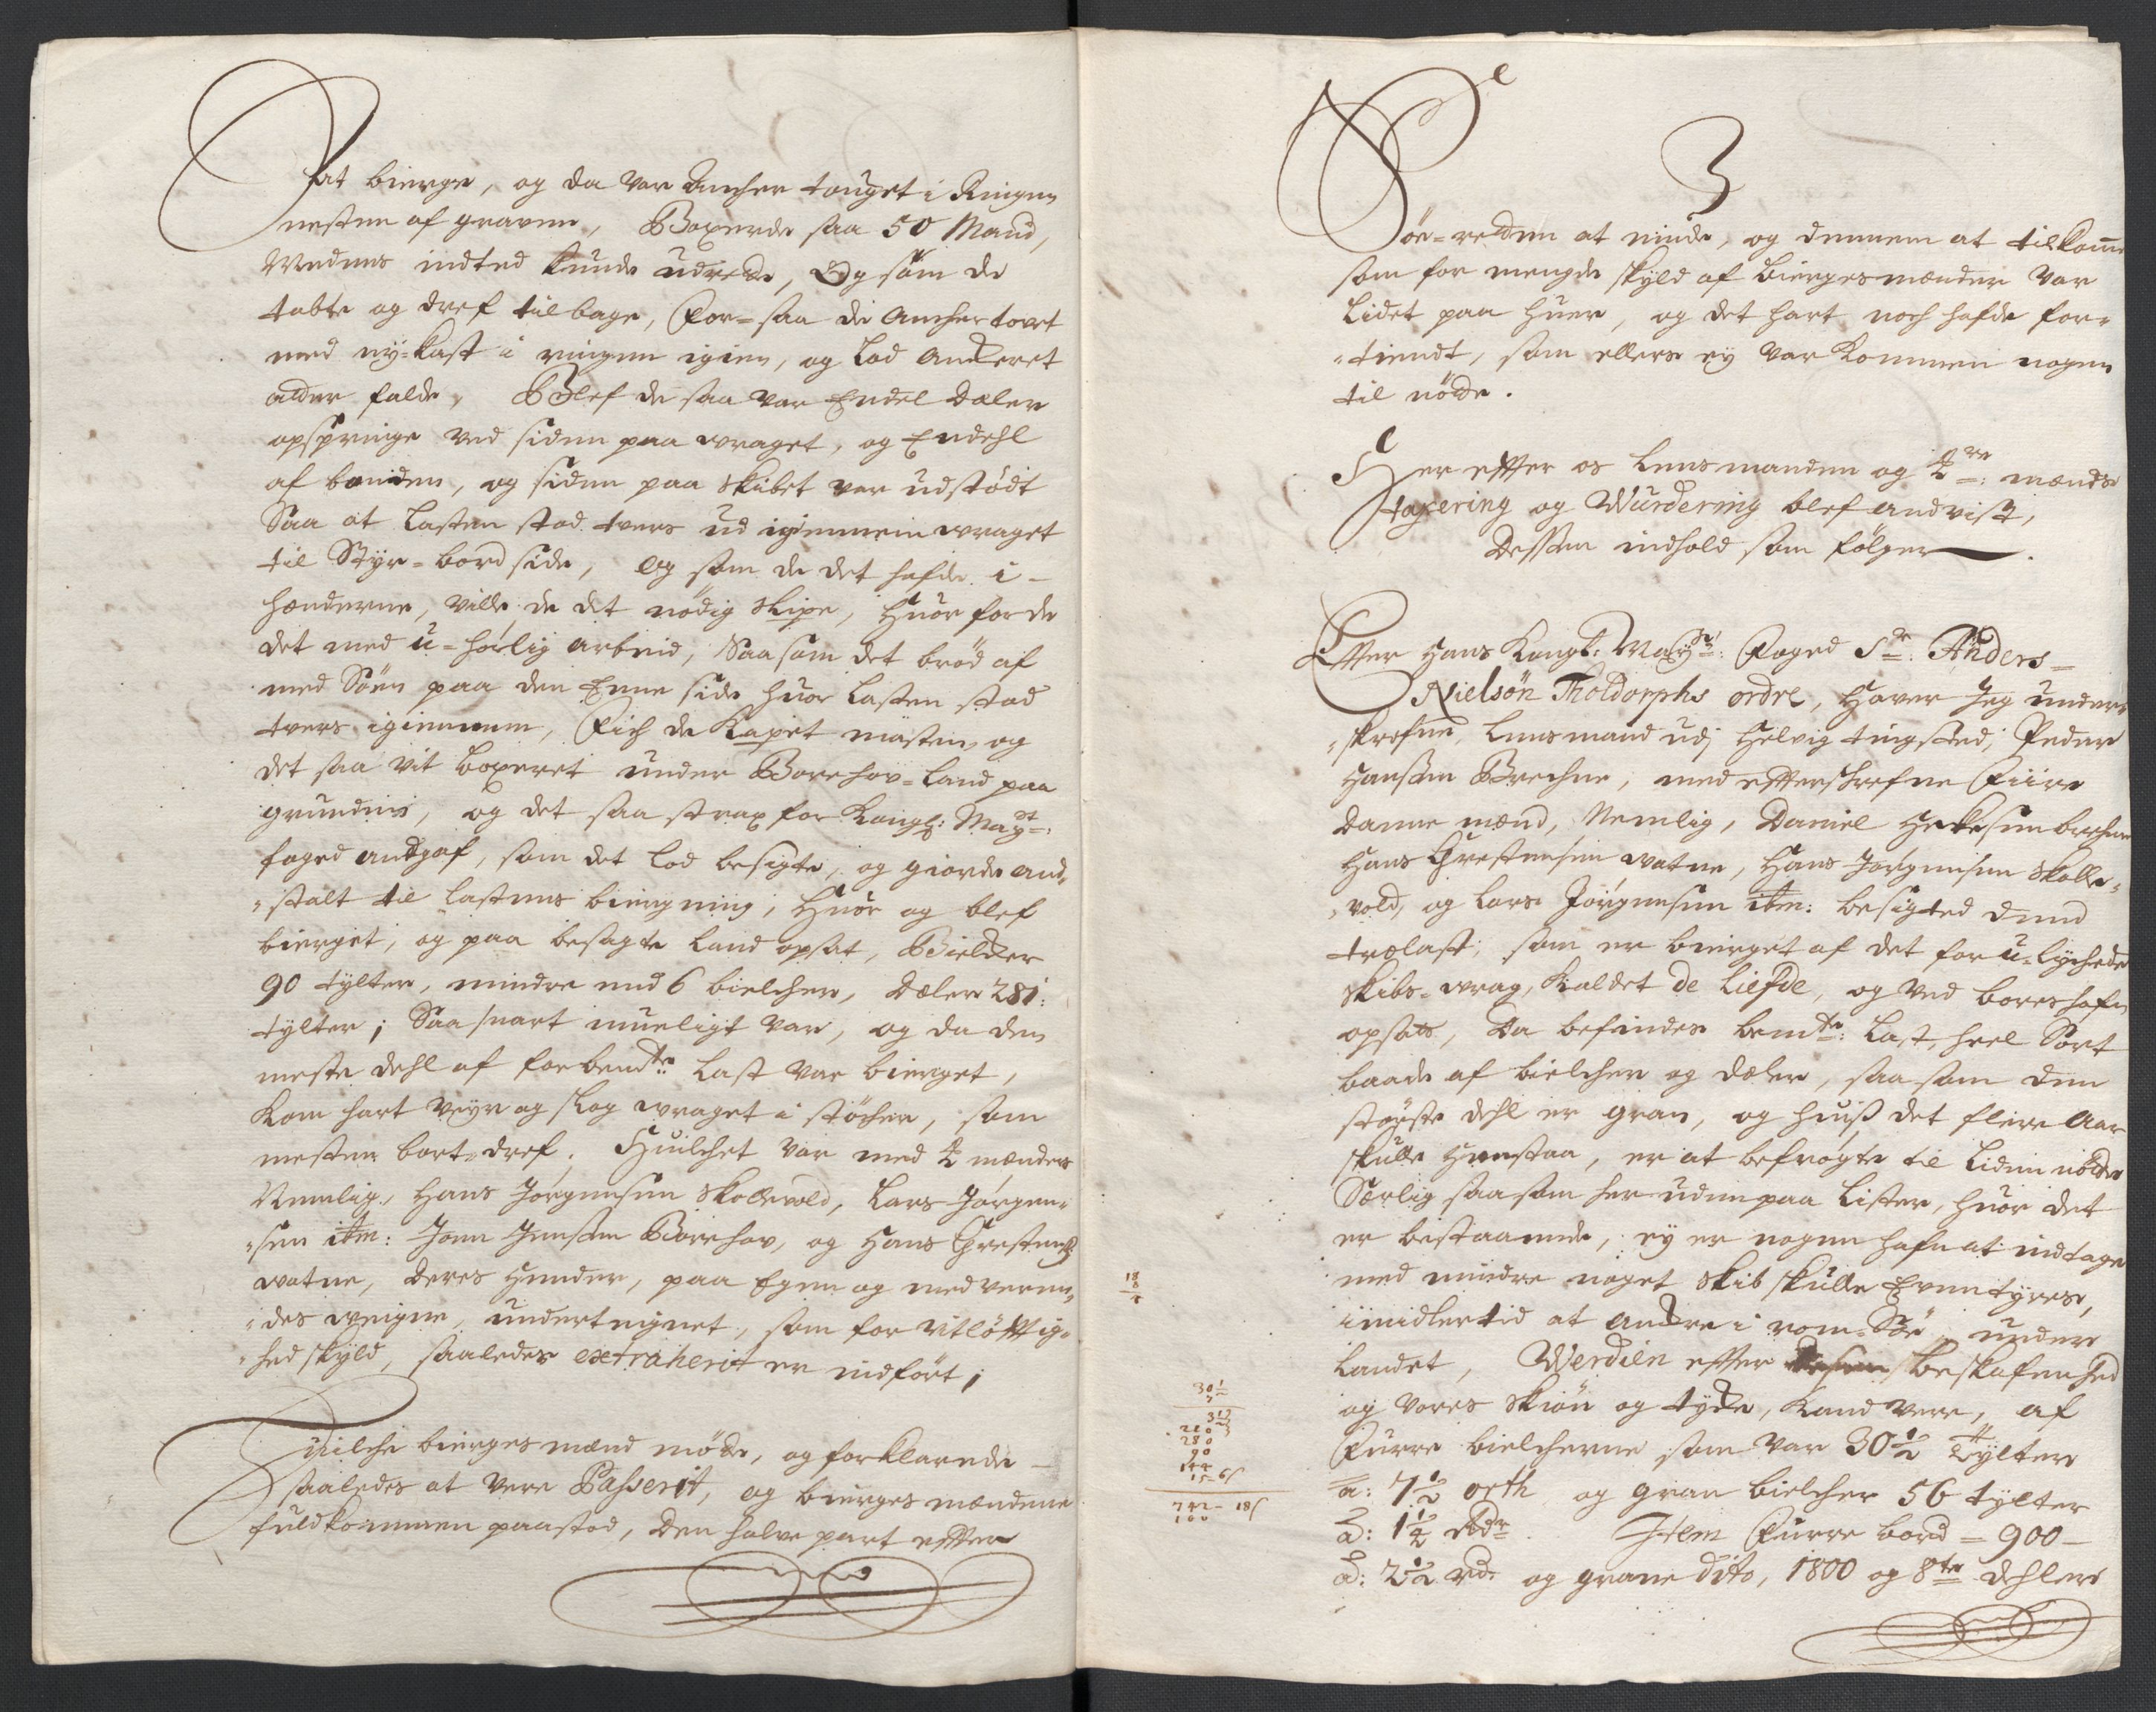 at bierge, og da var Ancher touget i Ringen
nesten af graven, Boxerde saa 50 Mand,
Medens indted kunde udrede, Og som de
tabte og dref tilbage, For-saa de Ancher tovet
med ny-kast i ringen igien, og lod Anckeret
atter falde, Blef de saa var Endel Dæler
opspringe ved siden paa wraget, og Endehl
af bonden, og siden paa Skibet var udstödt
Saa at Lasten stod tvers ud igiennem wraget
til Styr-bord side, Og som de det hafde i-
hænderne, ville de det nödig slipe, Huor for de
det med u-hörlig arbeid, Saasom det bröd af
med Söen paa den Eene side huor Lasten stod
tvers igiennem, Fich de Kapet masten, og
det saa vit boxeret under Borehov-Land paa
grunden, og det saa strax for Kongl: Mayt:
foged andgaf, som det lod besigte, og giorde and-
stalt til Lastens biergning, Huor og blef
bierget, og paa besagte Land opsat, Bielcker
90 tylter, mindre end 6 bielcher, Dæler 281:
tylter; Saa snart mueligt var, og da den
meste dehl af forbemte: Last var bierget,
Kom hart veyr og slog wraget i stöcher, som
mesten bort-dref. Huilchet var med 4 mænders
Nemlig, Hans Jörgensen Skollevold, Lars Jörgen-
sen itm: Joen Jensen Borehov, og Hans Christens:
watne, deres Hender, paa Egen og medveren-
des weigne, undertegnet, som for vitlöfftig-
hed skyld, saaledes extraherit er indfört;
Huilche bierges mænd mödte, og forklarede
saaledes at vere Passerit, og bierges mændene
fuldkommen paastod, den halve part effter
3
Söe-retten at niude, og dennem at tilkomme
som for mengde skyld af bierges mænder var
Lidet paa huer, og det hart noch hafde for-
tiendt, som ellers ey var kommen nogen
til nötte.
Her effter os Lensmanden og 4re: mænds
taxering og Wurdering blef andvist,
Dessen indhold som fölger
Effter Hans Kongl: Mayts: Foged Sr: Anders
Nielsön Tholdorphs ordre, Haver Jeg under-
skrefne, Lensmand udj Helvig tingsted, Peder
Hansen Brechne, med effterskrefne Fiire
danne mænd, Nemlig, Daniel
Hans Christensen watne, Hans Jörgensen Skolle-
vold, og Lars Jörgensen itm: besigted dend
trælast, som er bierget af det for u-lychede
Skibs-wrag, Kaldet de Liefde, og ved boreshafn
opsatt, Da befindes bemte: Last, heel Sort
baade af bielcher og dæler, saasom den
störste dehl er gran, og huis det flere Aar
skulle henstaa, er at befrögte til Liden nötte
Særlig saasom her uden paa Lister, huor det
er bestaaende, ey er nogen hafn at indtage
med mindre noget Skib skulle Eventyres,
imidlertid at anckre i rom-Söe, under
Landet, Werdien effter beskafenhed
og vores skiön og tycke, kand vere, af
Furre bielcherne som var 30½ Tylter
a: 7½ orth og gran bielcher 56 tylter
a: 1¼ Rdr. Item Furre bord = 900-
a: 2½ rd: og grane dito, 1800 og 8te dehler